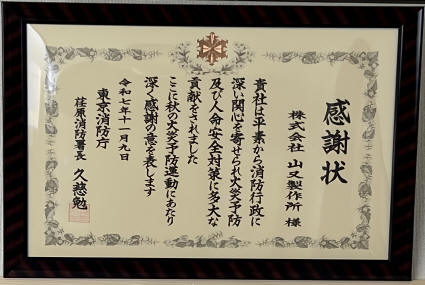 感謝状
株式会社 山又製作所 様
貴社は平素から消防行政に
深い関心を寄せられ火災予防
及び人命安全対策に多大な
貢献をされました
ここに秋の火災予防運動にあたり
深く感謝の意を表します
令和七年十一月九日
東京消防庁
荏原消防署長 久慈勉